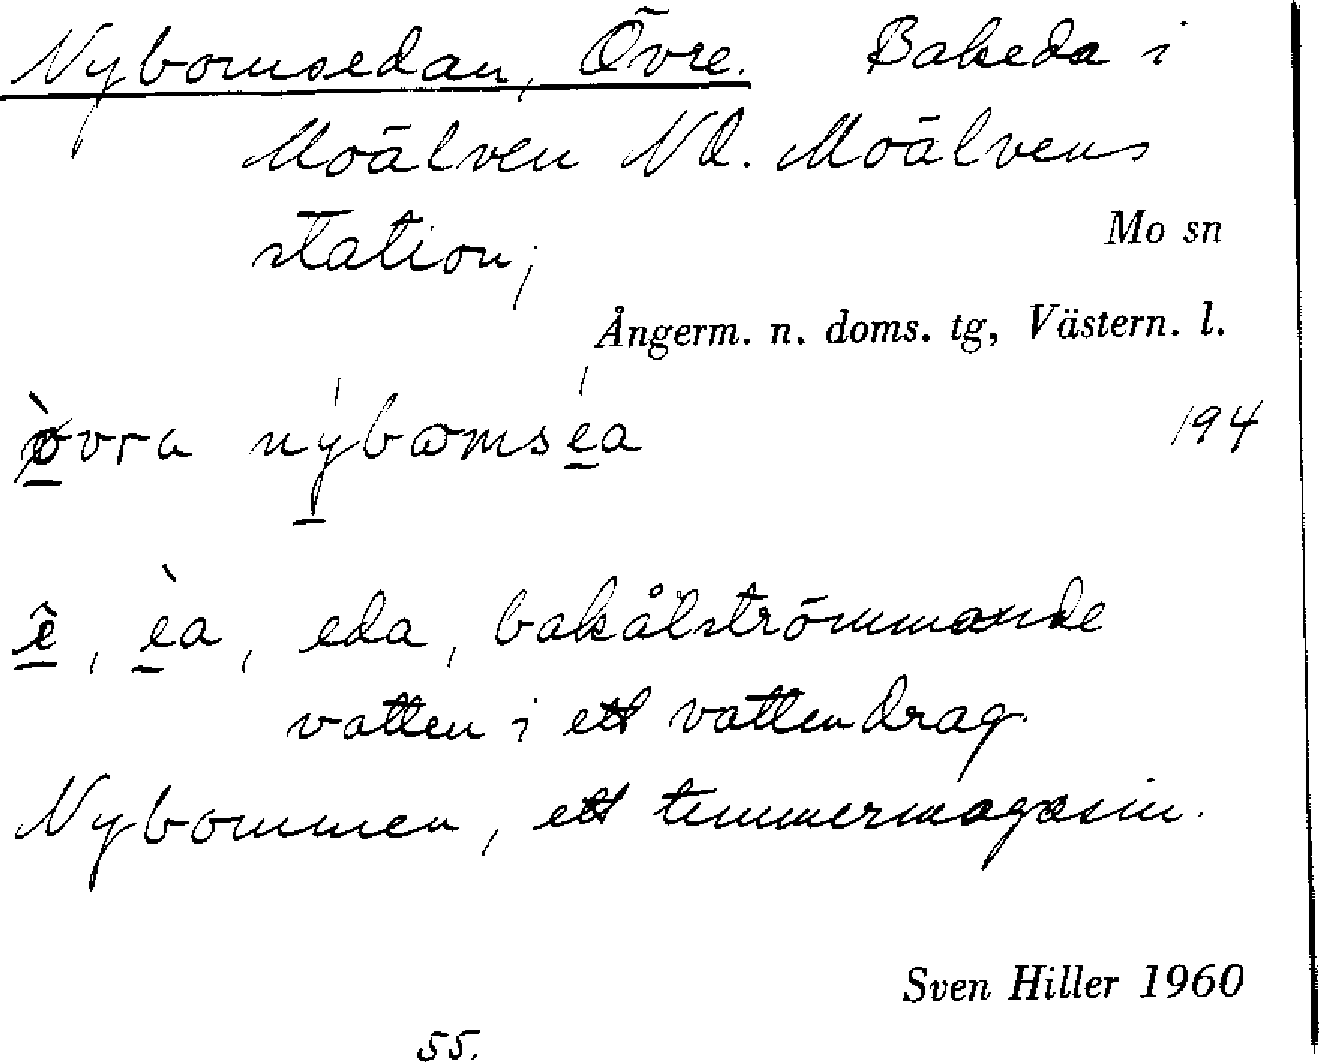 Nybomsedan, Övre. Bakeda i
Moälven NO. Moälvens
station;
Mo sn
Ångerm. n. doms. tg, Västern. l.
ø̀vra nýbomséa 194
ê, èa, eda, bakåtströmmande
vatten i ett vattendrag.
Nybommen, ett timmermagasin.
Sven Hiller 1960
55.